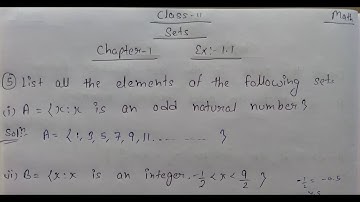 Class-11
Math
Sets
Chapter-1 Ex:-1.1
⑤ List all the elements of the following sets
(i) A = {x:x is an odd natural number}
Solⁿ. A = {1, 3, 5, 7, 9, 11 ......... }
(ii) B = {x:x is an integer. -1/2 < x < 9/2 }
-1/2 = -0.5